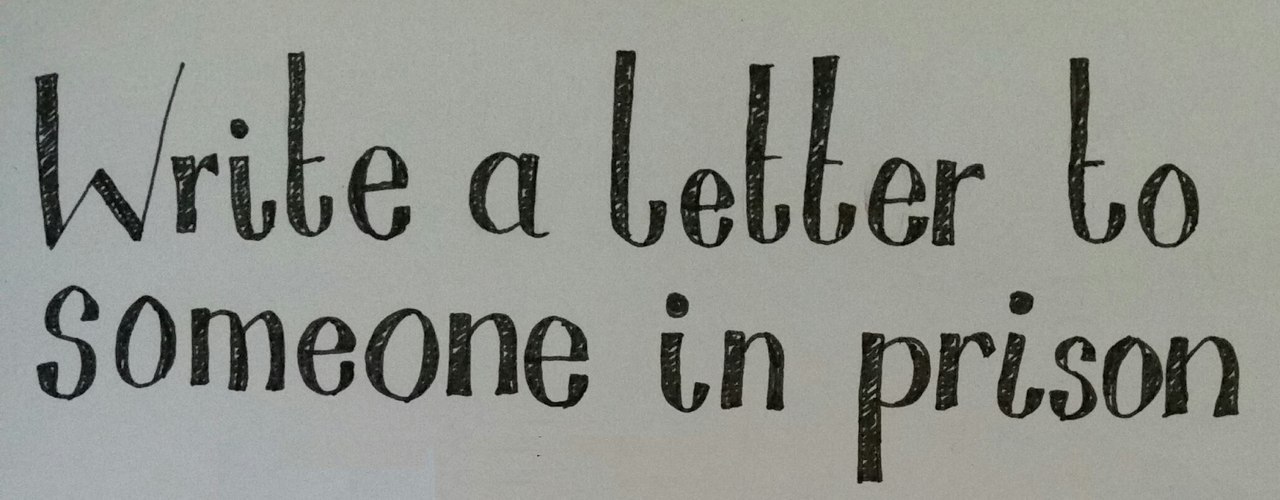 Write a letter to
someone in prison